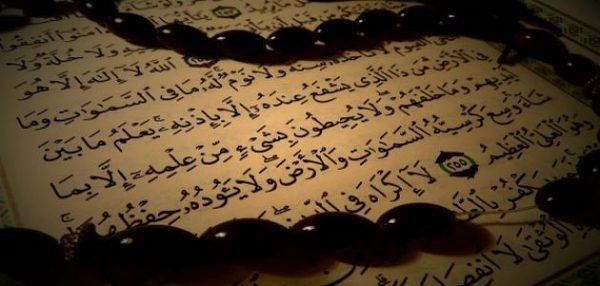 ءَامَنُوٓا۟ أَنفِقُوا۟
وَلَا خُلَّةٌ وَلَا
ٱللَّهُ لَآ إِلَٰهَ إِلَّا هُوَ
لَا تَأْخُذُهُۥ سِنَةٌ وَلَا نَوْمٌ ۚ لَّهُۥ مَا فِى ٱلسَّمَٰوَٰتِ وَمَا
فِى ٱلْأَرْضِ ۗ مَن ذَا ٱلَّذِى يَشْفَعُ عِندَهُۥٓ إِلَّا بِإِذْنِهِۦ ۚ يَعْلَمُ مَا بَيْنَ
أَيْدِيهِمْ وَمَا خَلْفَهُمْ ۖ وَلَا يُحِيطُونَ بِشَىْءٍ مِّنْ عِلْمِهِۦٓ إِلَّا بِمَا
شَآءَ ۚ وَسِعَ كُرْسِيُّهُ ٱلسَّمَٰوَٰتِ وَٱلْأَرْضَ ۖ وَلَا يَـُٔودُهُۥ حِفْظُهُمَا ۚ
وَهُوَ ٱلْعَلِىُّ ٱلْعَظِيمُ ٢٥٥ لَآ إِكْرَاهَ فِى
يَكْفُرْ
ٱلْوُثْقَىٰ لَا ٱنفِصَامَ